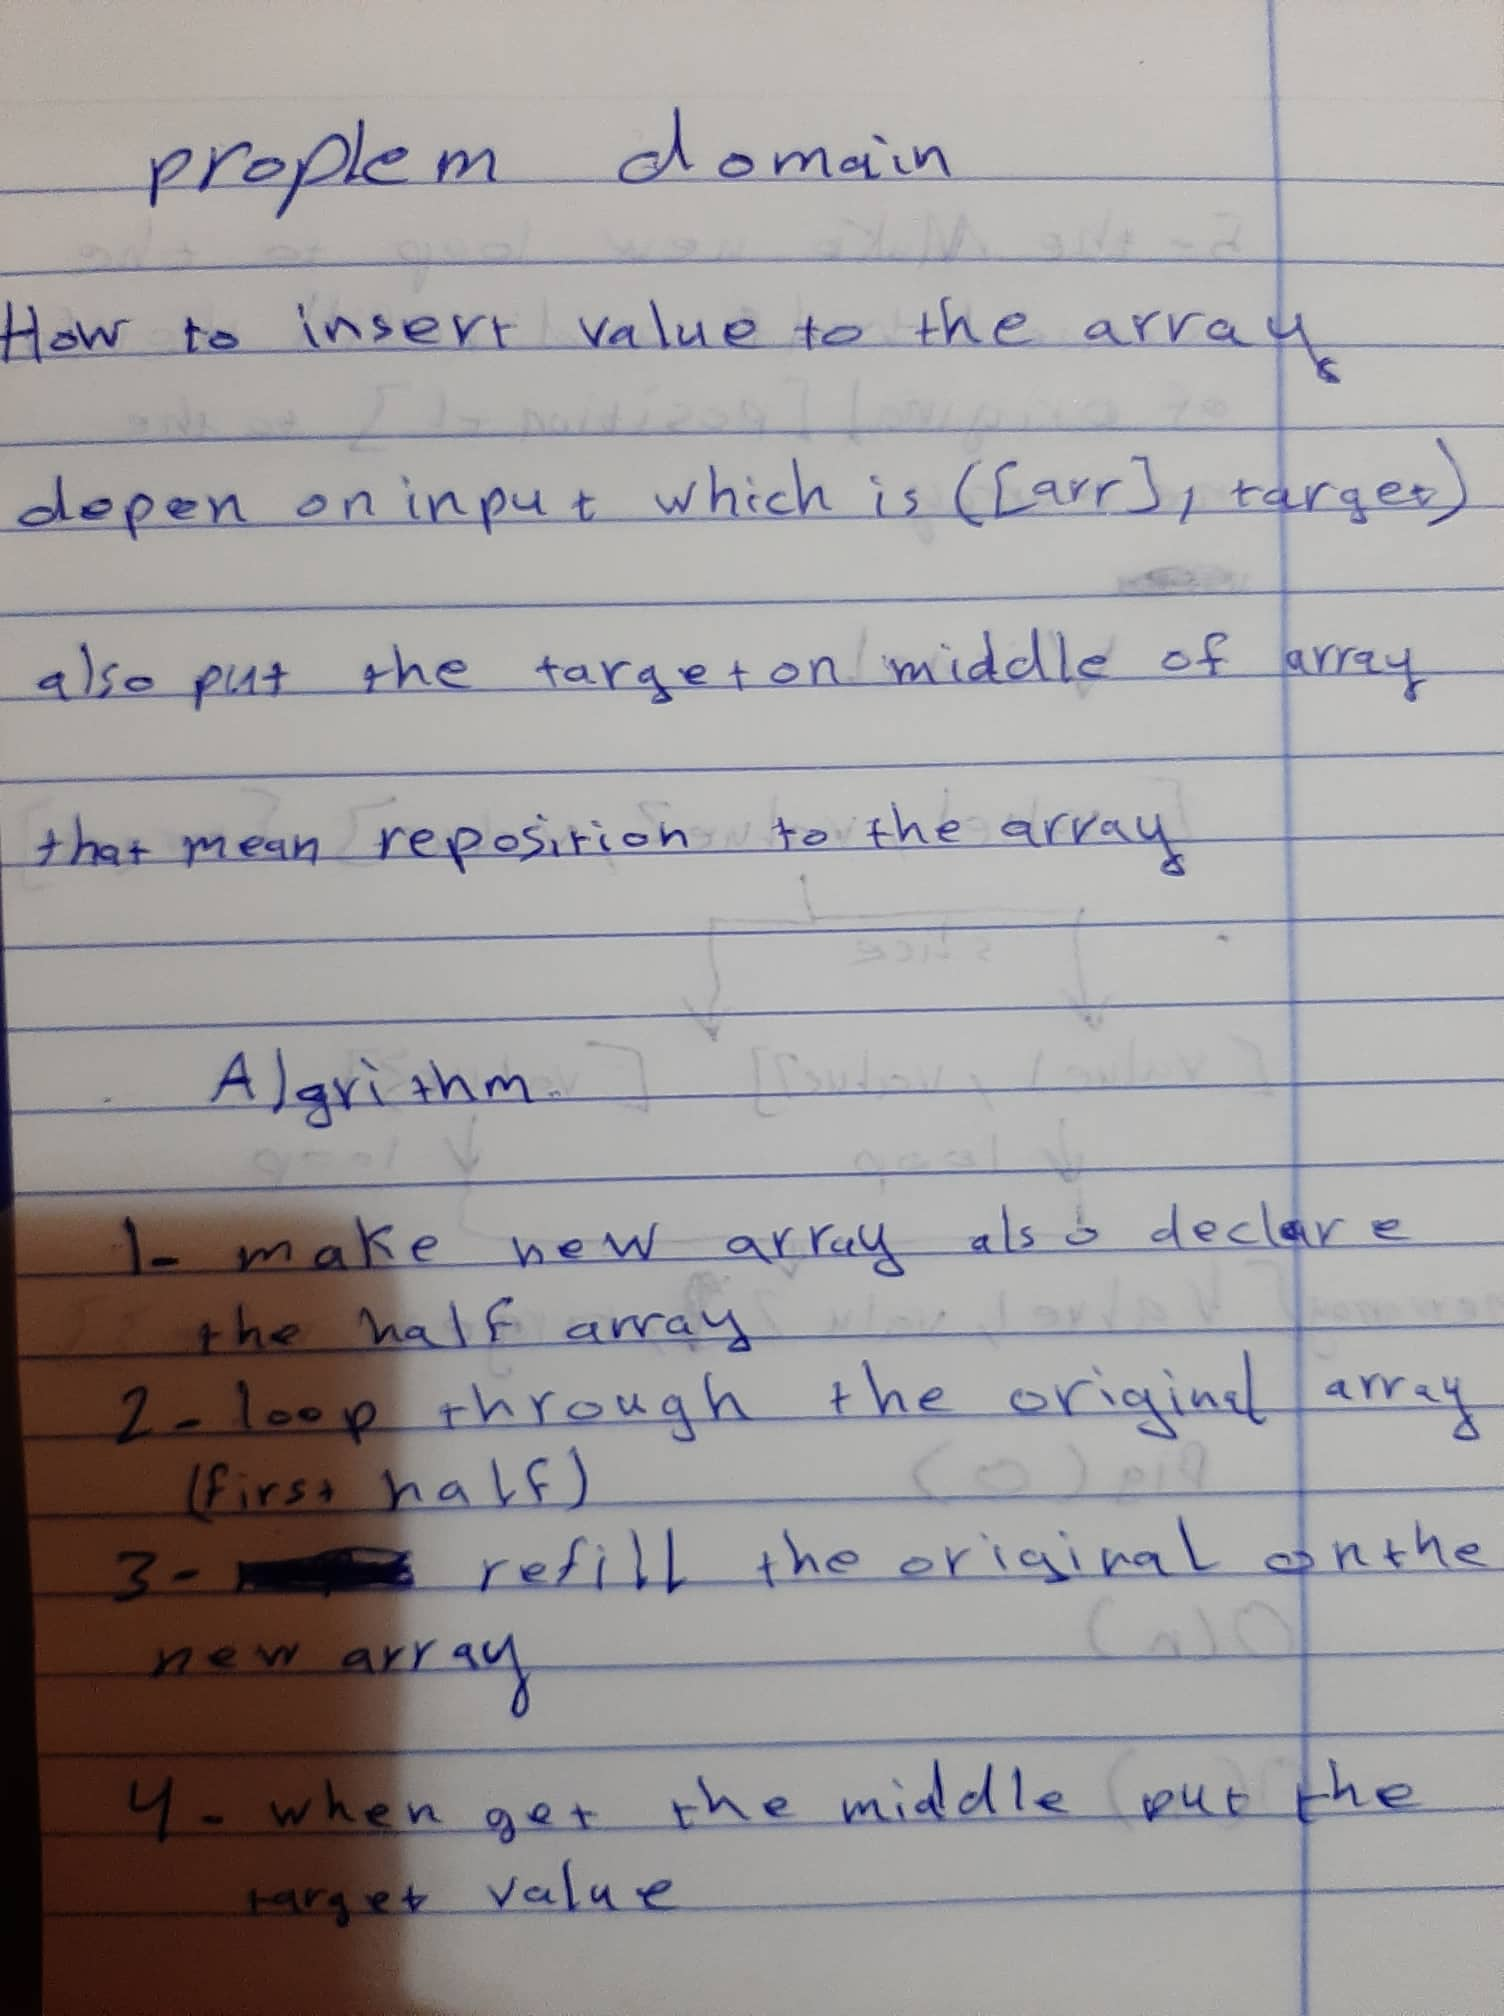 proplem domain
How to insert value to the array
depen on input which is ([arr], target)
also put the target on middle of array
that mean reposition to the array
Algrithm
1- make new array also declare
the half array
2- loop through the original array
(first half)
3- refill the original on the
new array
4- when get the middle put the
target value